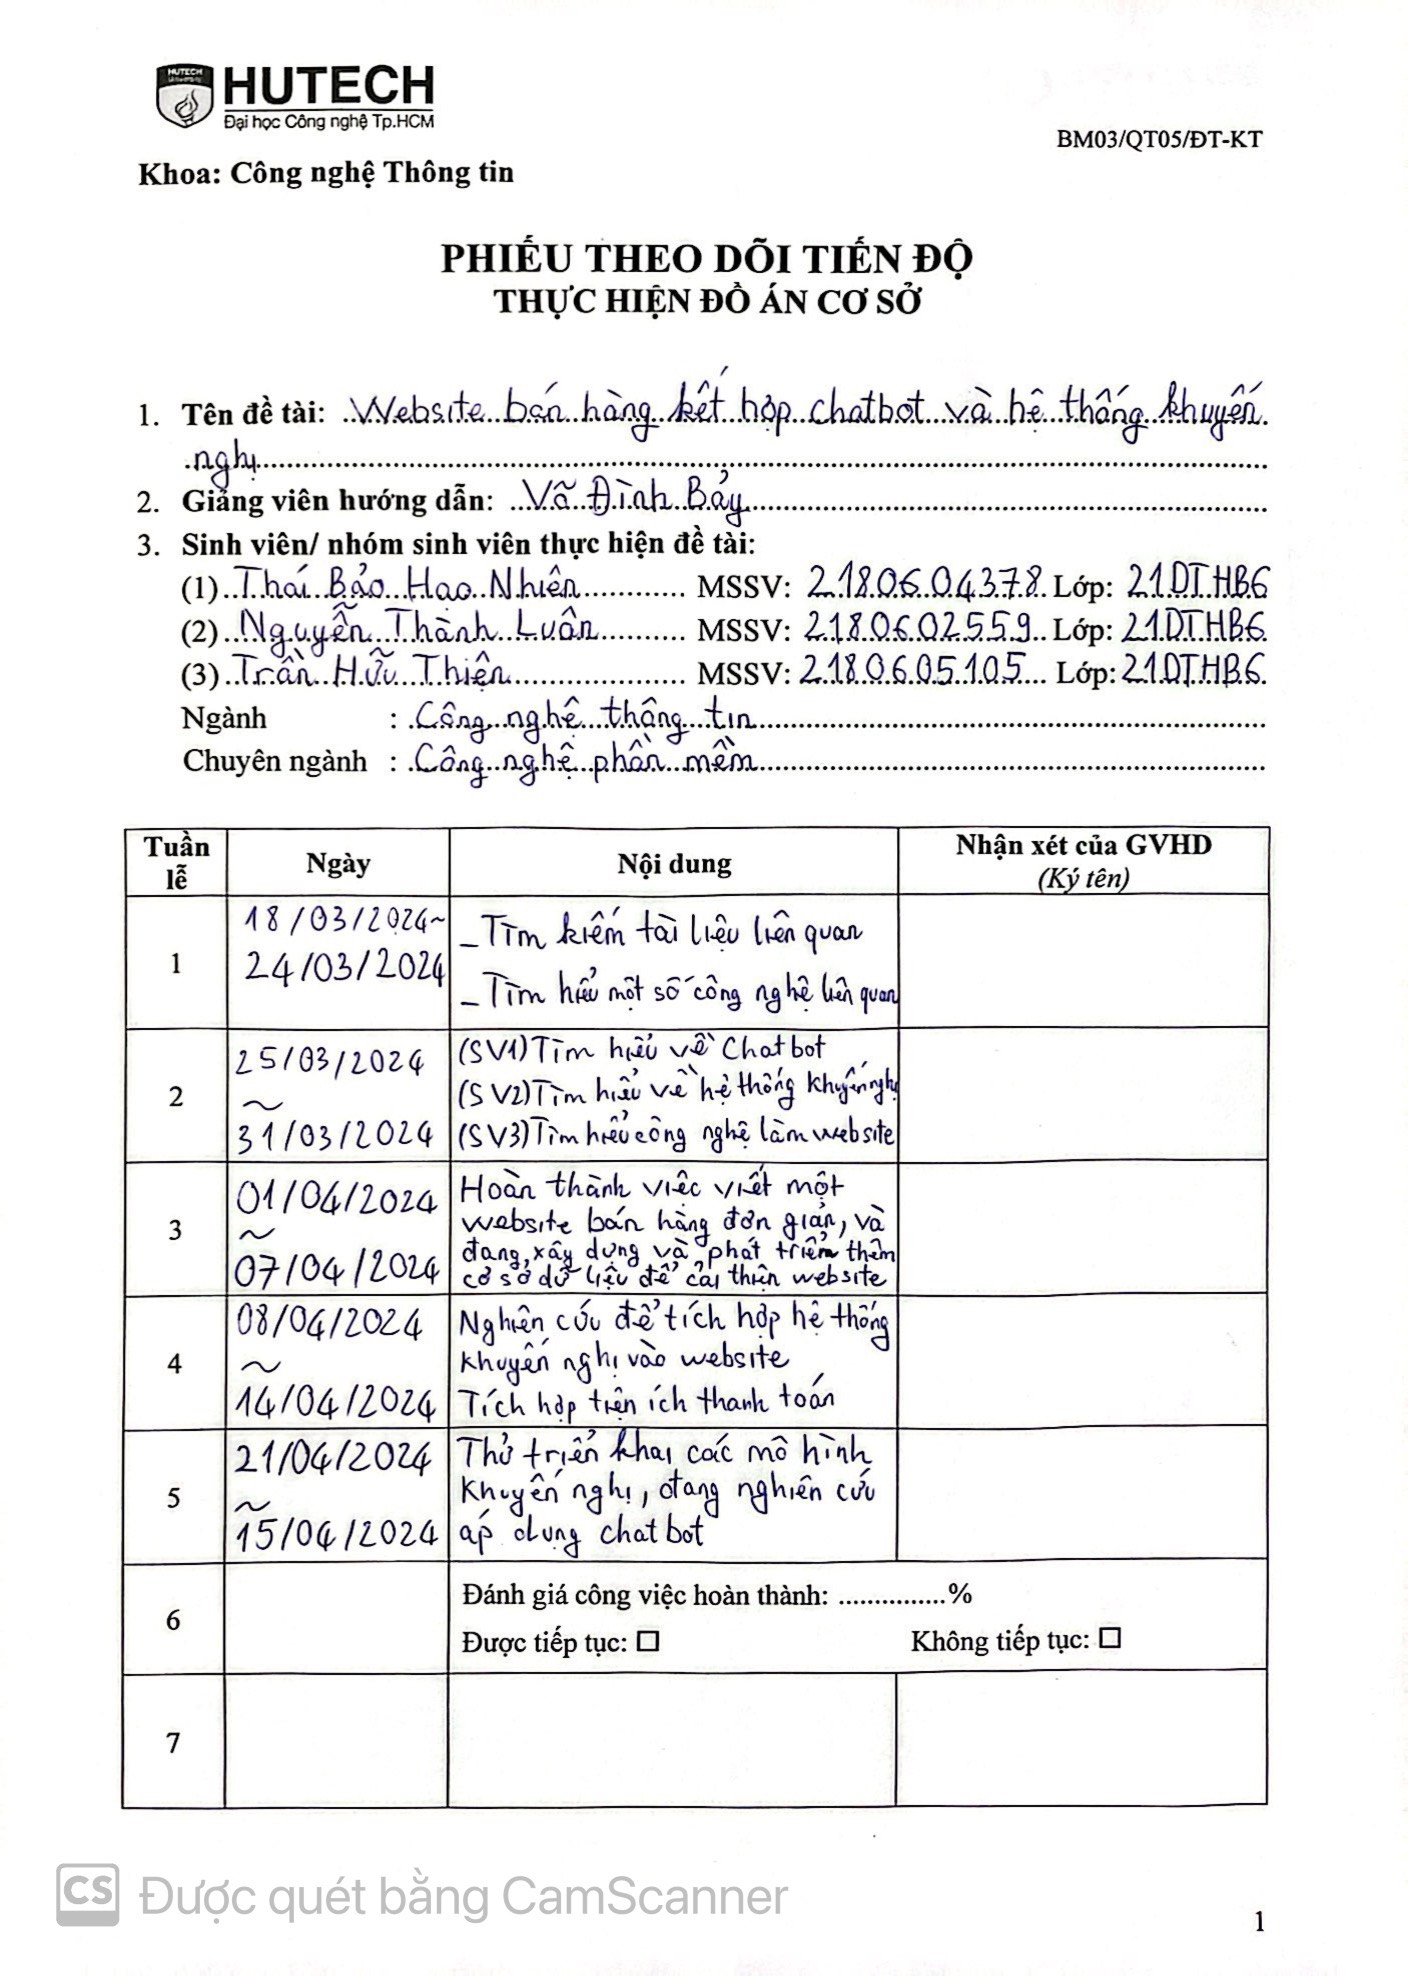 HUTECH
HUTECH
Đại học Công nghệ Tp.HCM
BM03/QT05/ĐT-KT
Khoa: Công nghệ Thông tin
PHIẾU THEO DÕI TIẾN ĐỘ
THỰC HIỆN ĐỒ ÁN CƠ SỞ
1. Tên đề tài: Website bán hàng kết hợp chatbot và hệ thống khuyến
nghị
2. Giảng viên hướng dẫn: Võ Đình Bảy
3. Sinh viên/ nhóm sinh viên thực hiện đề tài:
(1) Thái Bảo Hạo Nhiên MSSV: 2180604378 Lớp: 21DTHB6
(2) Nguyễn Thành Luân MSSV: 2180602559 Lớp: 21DTHB6
(3) Trần Hữu Thiện MSSV: 2180605105 Lớp: 21DTHB6
Ngành : Công nghệ thông tin
Chuyên ngành : Công nghệ phần mềm
Tuần lễ Ngày Nội dung Nhận xét của GVHD
(Ký tên)
1
18/03/2024~
24/03/2024
- Tìm kiếm tài liệu liên quan
- Tìm hiểu một số công nghệ liên quan
2
25/03/2024
~
31/03/2024
(SV1) Tìm hiểu về Chatbot
(SV2) Tìm hiểu về hệ thống khuyến nghị
(SV3) Tìm hiểu công nghệ làm website
3
01/04/2024
~
07/04/2024
Hoàn thành việc viết một
website bán hàng đơn giản, và
đang xây dựng và phát triển thêm
cơ sở dữ liệu để cải thiện website
4
08/04/2024
~
14/04/2024
Nghiên cứu để tích hợp hệ thống
khuyến nghị vào website
Tích hợp tiện ích thanh toán
5
21/04/2024
~
15/04/2024
Thử triển khai các mô hình
khuyến nghị, đang nghiên cứu
áp dụng chatbot
6
Đánh giá công việc hoàn thành: ...............%
Được tiếp tục: ☐ Không tiếp tục: ☐
7
CS Được quét bằng CamScanner
1